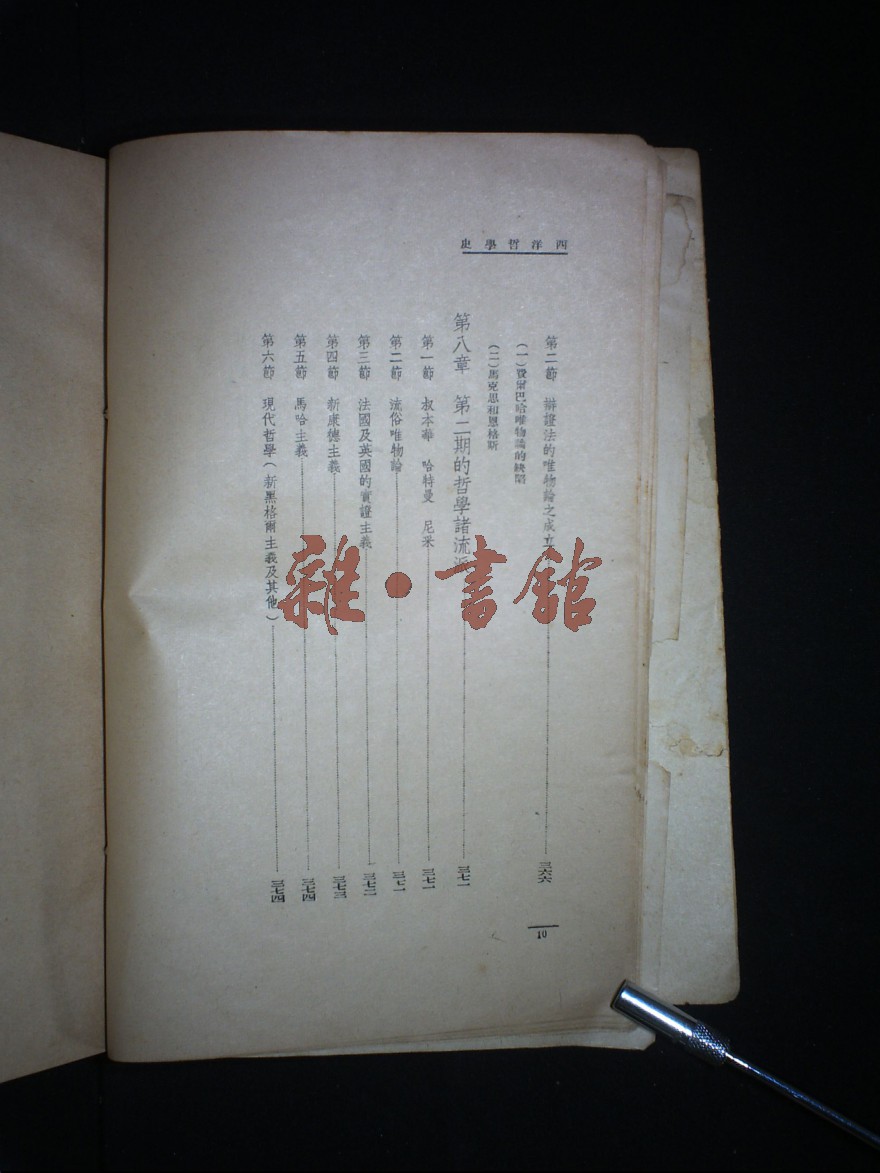 西洋哲學史
第二節 辯證法的唯物論之成立 三六六
(一)費爾巴哈唯物論的缺陷
(二)馬克思和恩格斯
第八章 第二期的哲學諸流派 三七一
第一節 叔本華 哈特曼 尼采 三七一
第二節 流俗唯物論 三七一
第三節 法國及英國的實證主義 三七二
第四節 新康德主義 三七三
第五節 馬哈主義 三七四
第六節 現代哲學(新黑格爾主義及其他) 三七四
10
雜·書館